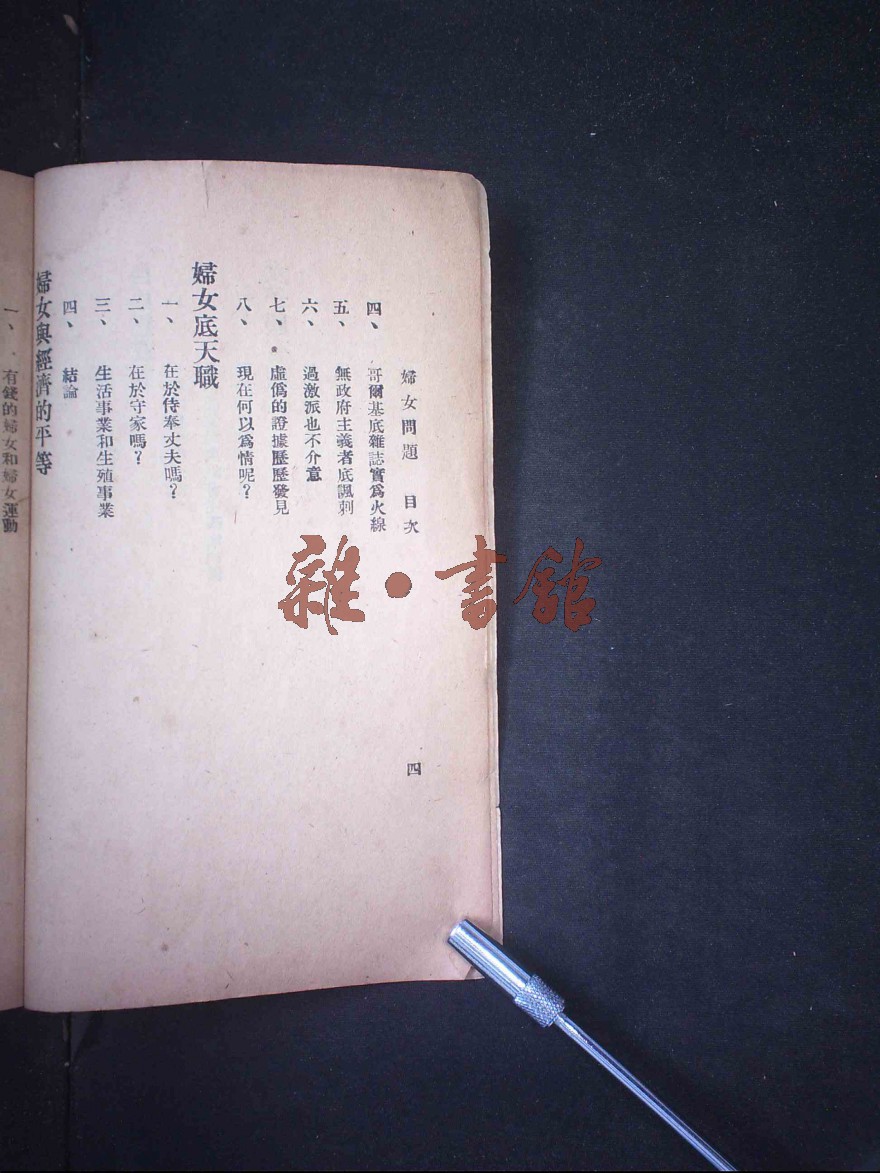 婦女問題 目次
四、哥爾基底雜誌實爲火線
五、無政府主義者底諷刺
六、過激派也不介意
七、虛僞的證據歷歷發見
八、現在何以爲情呢？
婦女底天職
一、在於侍奉丈夫嗎？
二、在於守家嗎？
三、生活事業和生殖事業
四、結論
婦女與經濟的平等
一、有錢的婦女和婦女運動
四
雜・書館